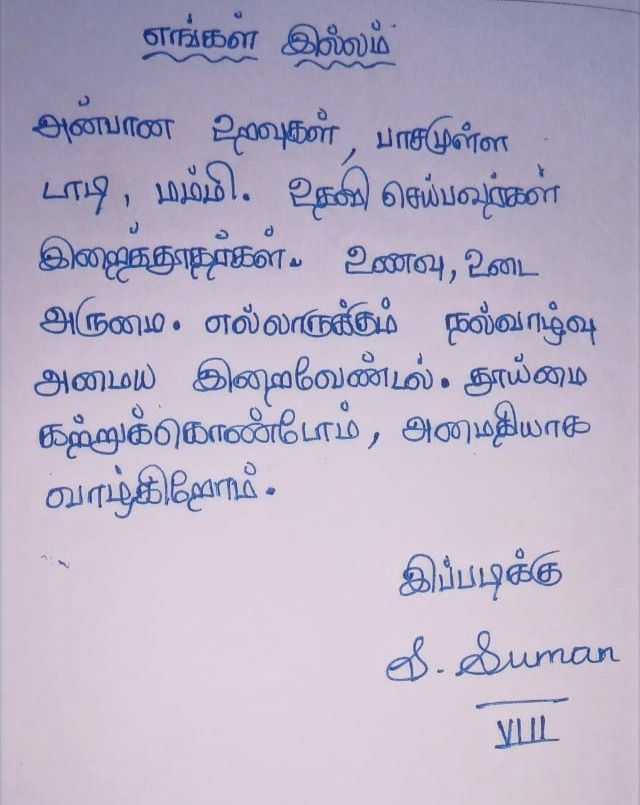 எங்கள் இல்லம்
அன்பான உறவுகள், பாசமுள்ள
டாடி, மம்மி. உதவி செய்பவர்கள்
இறைத்தூதர்கள். உணவு, உடை
அருமை. எல்லாருக்கும் நல்வாழ்வு
அமைய இறைவேண்டல். தூய்மை
கற்றுக்கொண்டோம், அமைதியாக
வாழ்கிறோம்.
இப்படிக்கு
S. Suman
VIII